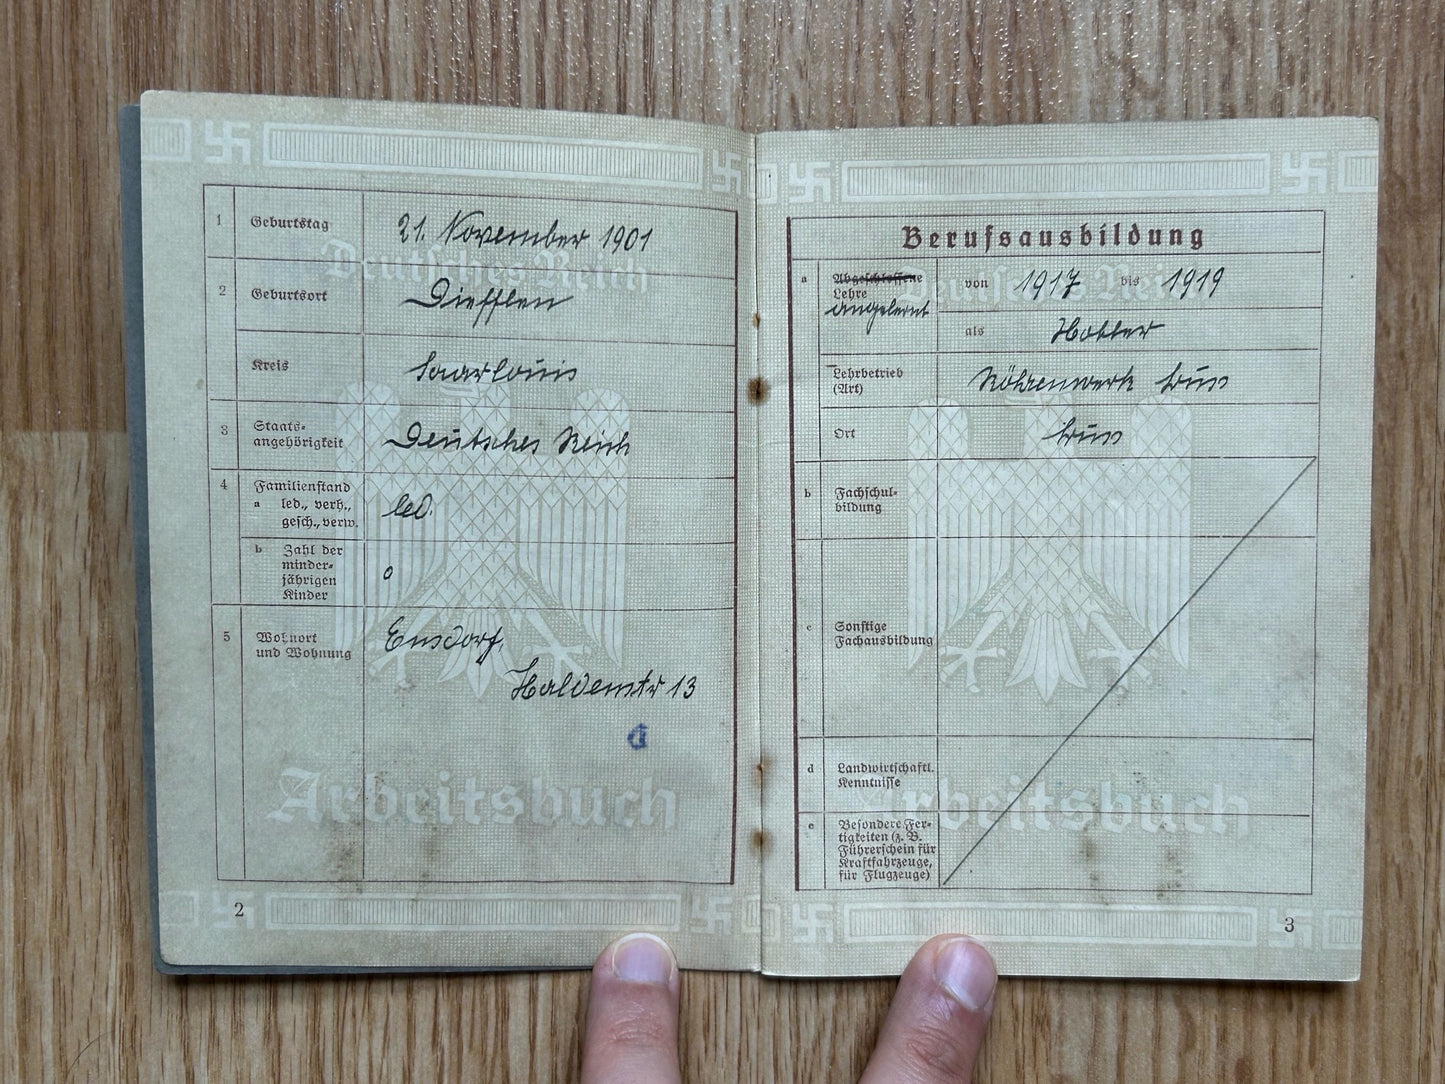 1 Geburtstag 21. November 1901
Deutsches Reich
2 Geburtsort Diefflen
Kreis Saarlouis
3 Staats-
angehörigkeit Deutsches Reich
4 Familienstand
a led., verh.,
gesch., verw. led.
b Zahl der
minder-
jährigen
Kinder 0
5 Wohnort
und Wohnung Ensdorf,
Haldenstr 13
Arbeitsbuch
2
Berufsausbildung
a Abgeschlossene
Lehre
angelernt
von 1917 bis 1919
Deutsches Reich
als Hobler
Lehrbetrieb
(Art) Röhrenwerk Bous
Ort Bous
b Fachschul-
bildung
c Sonstige
Fachausbildung
d Landwirtschaftl.
Kenntnisse
Arbeitsbuch
e Besondere Fer-
tigkeiten (z. B.
Führerschein für
Kraftfahrzeuge,
für Flugzeuge)
3